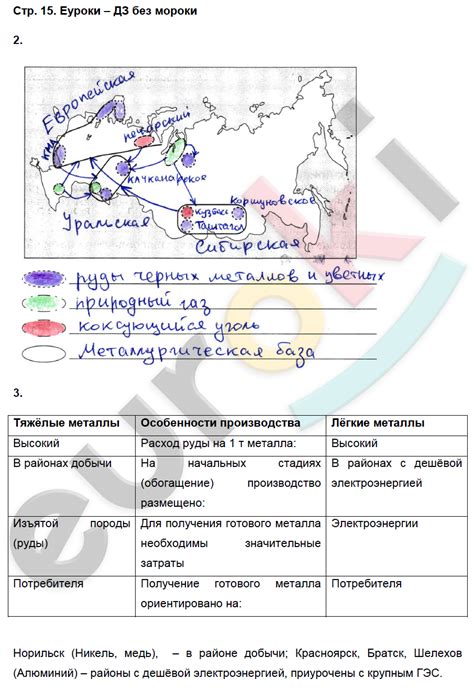 Стр. 15. Еуроки – ДЗ без мороки
2.
Европейская
КМА
печорский
качканарское
Уральская
Кузбасс
Таштагол
Коршуновское
Сибирская
руды черных металлов и цветных
природный газ
коксующийся уголь
Металлургическая база
3.
Тяжёлые металлы Особенности производства Лёгкие металлы
Высокий Расход руды на 1 т металла: Высокий
В районах добычи На начальных стадиях В районах с дешёвой
(обогащение) производство электроэнергией
размещено:
Изъятой породы Для получения готового металла Электроэнергии
(руды) необходимы значительные
затраты
Потребителя Получение готового металла Потребителя
ориентировано на:
Норильск (Никель, медь), – в районе добычи; Красноярск, Братск, Шелехов
(Алюминий) – районы с дешёвой электроэнергией, приурочены с крупным ГЭС.
euroki